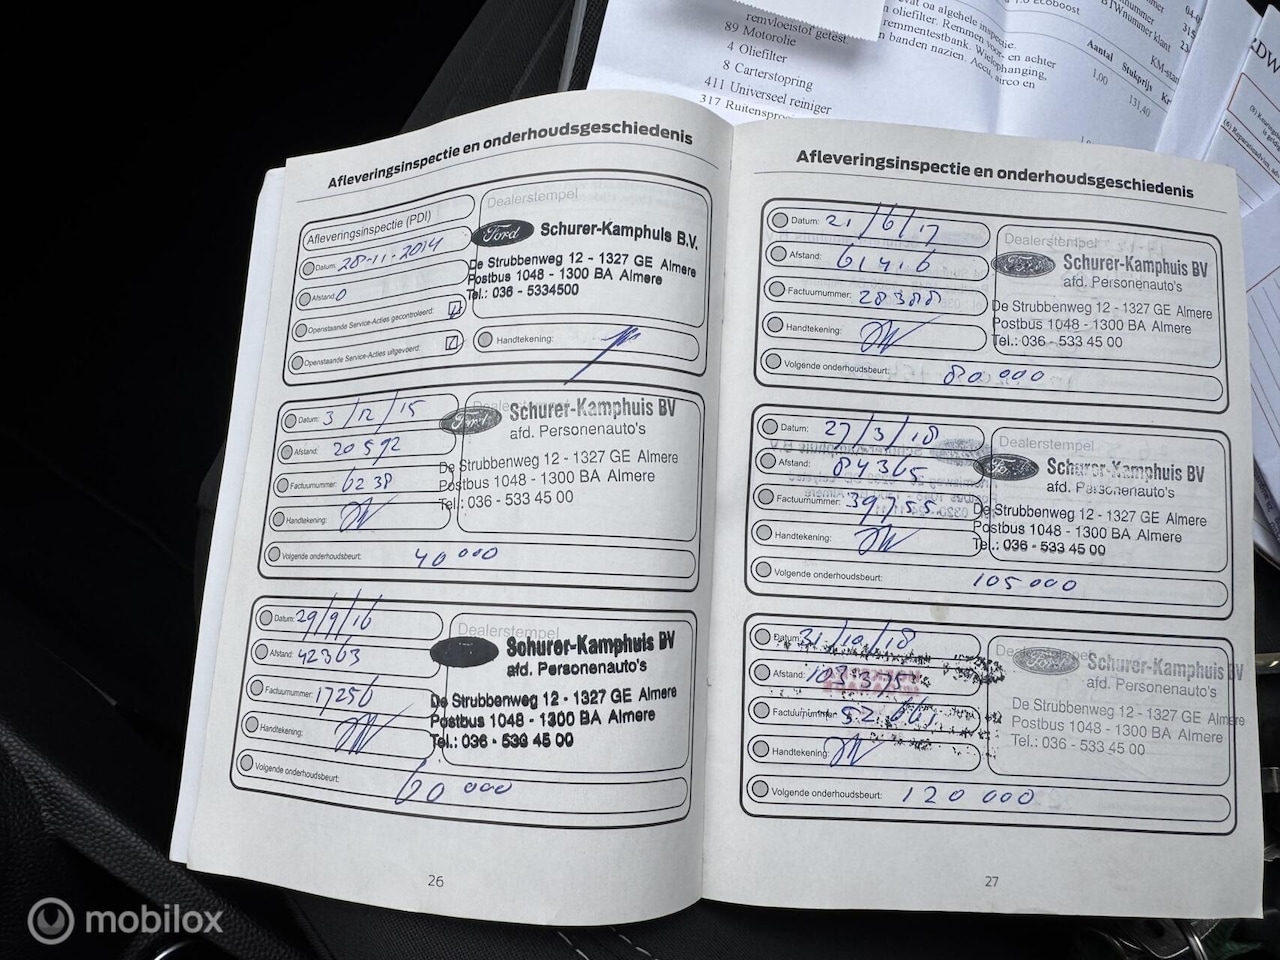 remvloeistof getest.
89 Motorolie
4 Oliefilter
8 Carterstopring
411 Universeel reiniger
317
en oliefilter. Remmen voor- en achter
remmentestbank. Wielophanging,
en banden nazien. Accu, airco en
Aantal Stukprijs
1,00 131,40
Afleveringsinspectie en onderhoudsgeschiedenis
Afleveringsinspectie (PDI)
Datum: 28-11-2014
Afstand: 0
Openstaande Service-Acties gecontroleerd:
Openstaande Service-Acties uitgevoerd:
Dealerstempel
Ford Schurer-Kamphuis B.V.
De Strubbenweg 12 - 1327 GE Almere
Postbus 1048 - 1300 BA Almere
Tel.: 036 - 5334500
Handtekening:
Datum: 3/12/15
Afstand: 20592
Factuurnummer: 6238
Handtekening:
Volgende onderhoudsbeurt: 40 000
Dealerstempel
Ford Schurer-Kamphuis BV
afd. Personenauto's
De Strubbenweg 12 - 1327 GE Almere
Postbus 1048 - 1300 BA Almere
Tel.: 036 - 533 45 00
Datum: 29/9/16
Afstand: 42363
Factuurnummer: 17256
Handtekening:
Volgende onderhoudsbeurt: 60 000
Dealerstempel
Schurer-Kamphuis BV
afd. Personenauto's
De Strubbenweg 12 - 1327 GE Almere
Postbus 1048 - 1300 BA Almere
Tel.: 036 - 533 45 00
26
Afleveringsinspectie en onderhoudsgeschiedenis
Datum: 21/6/17
Afstand: 61416
Factuurnummer: 28388
Handtekening:
Volgende onderhoudsbeurt: 80 000
Dealerstempel
Ford Schurer-Kamphuis BV
afd. Personenauto's
De Strubbenweg 12 - 1327 GE Almere
Postbus 1048 - 1300 BA Almere
Tel.: 036 - 533 45 00
Datum: 27/3/18
Afstand: 84365
Factuurnummer: 39755
Handtekening:
Volgende onderhoudsbeurt: 105 000
Dealerstempel
Ford Schurer-Kamphuis BV
afd. Personenauto's
De Strubbenweg 12 - 1327 GE Almere
Postbus 1048 - 1300 BA Almere
Tel.: 036 - 533 45 00
Datum: 31/10/18
Afstand:
Factuurnummer:
Handtekening:
Volgende onderhoudsbeurt: 120 000
Dealerstempel
Ford Schurer-Kamphuis BV
afd. Personenauto's
De Strubbenweg 12 - 1327 GE Almere
Postbus 1048 - 1300 BA Almere
Tel.: 036 - 533 45 00
27
mobilox